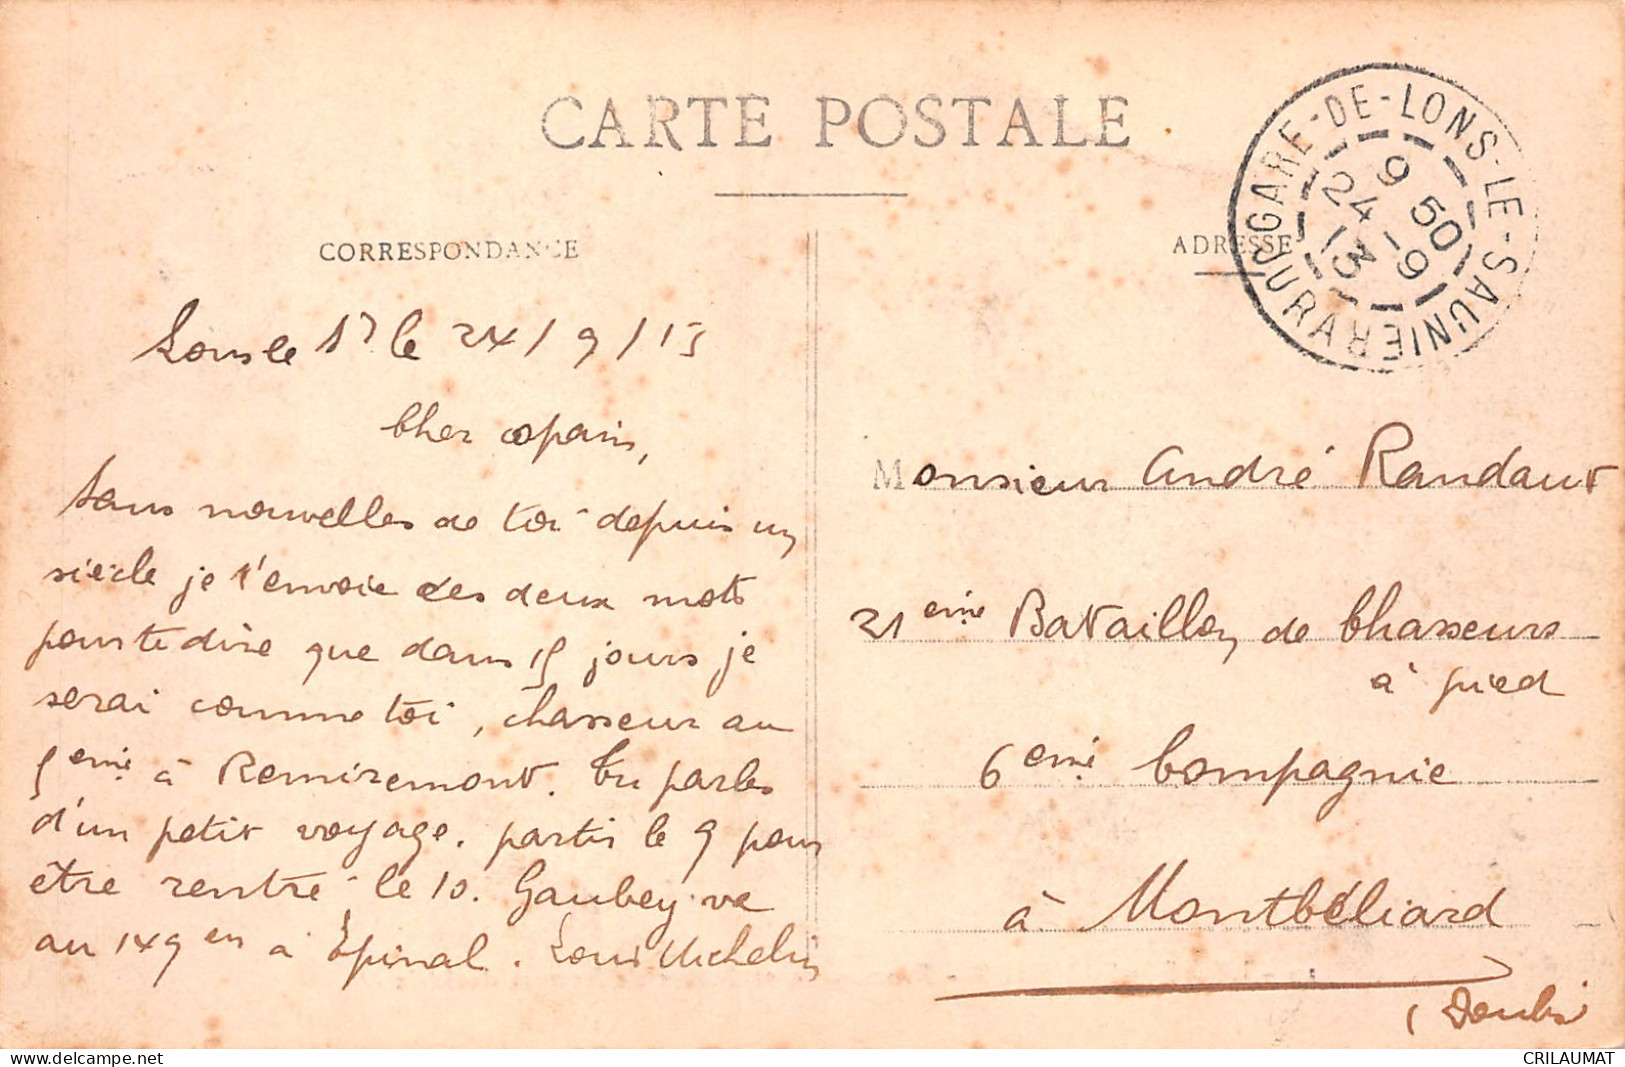 CARTE POSTALE
CORRESPONDANCE
ADRESSE
GARE-DE-LONS-LE-SAUNIER
JURA
9 50
24 - 9
13
Lons le le 24/9/13
Cher copain,
Sans nouvelles de toi depuis un
siècle je t'envoie ces deux mots
pour te dire que dans 15 jours je
serai comme toi, chasseur au
5eme à Remiremont. Tu parles
d'un petit voyage. partir le 9 pour
être rentré le 10. Gaubey va
au 149 en à Epinal. Louis Michelin
Monsieur André Randaut
21eme Bataillon de Chasseurs
à pied
6eme Compagnie
à Montbéliard
(Doubs
www.delcampe.net
CRILAUMAT